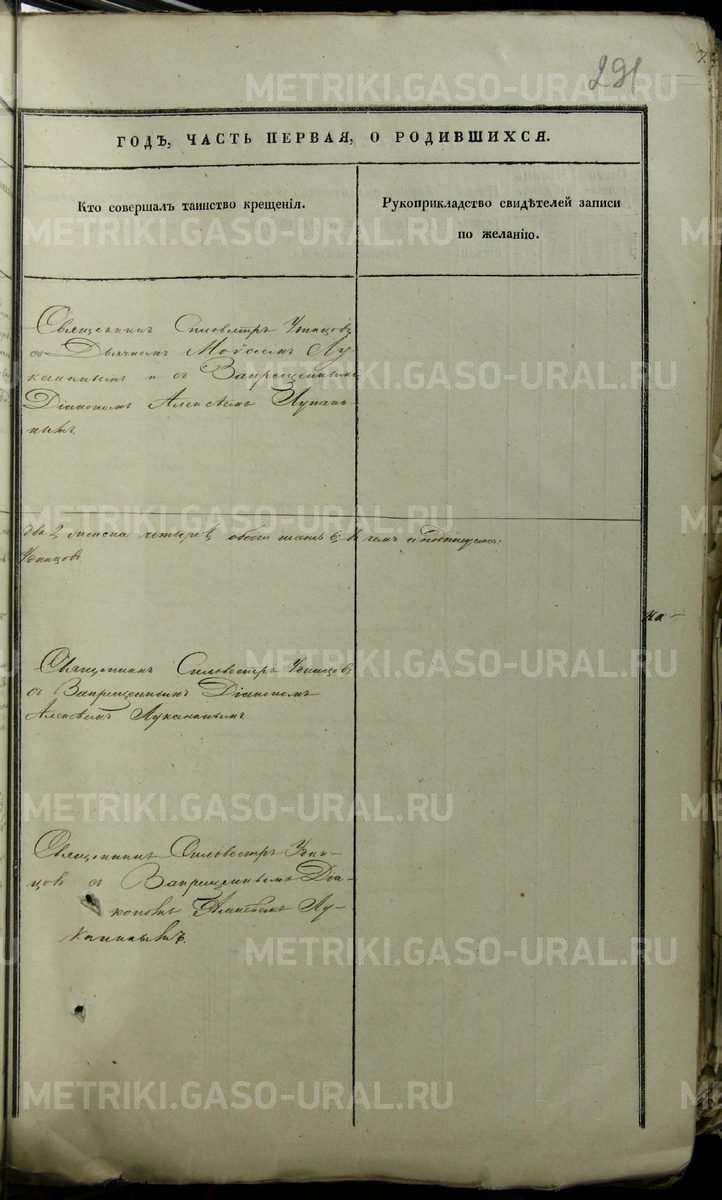 291
ГОДЪ, ЧАСТЬ ПЕРВАЯ, О РОДИВШИХСЯ.
Кто совершалъ таинство крещенія.
Рукоприкладство свидѣтелей записи
по желанію.
Священникъ Сильвестръ
съ Дьячкомъ Моѵсеемъ Лу-
канинымъ и съ Запрещеннымъ
Діакономъ Алексѣемъ Лукани-
нымъ
два 2, женска четыре 4, обоего шесть 6, въ чемъ и подписуемся:
Священникъ Сильвестръ
съ Запрещеннымъ Діакономъ
Алексѣемъ Луканинымъ
Священникъ Сильвестръ
съ Запрещеннымъ Діа-
кономъ Алексѣемъ Лу-
канинымъ
На
METRIKI.GASO-URAL.RU
METRIKI.GASO-URAL.RU
METRIKI.GASO-URAL.RU
METRIKI.GASO-URAL.RU
METRIKI.GASO-URAL.RU
METRIKI.GASO-URAL.RU
METRIKI.GASO-URAL.RU
METRIKI.GASO-URAL.RU